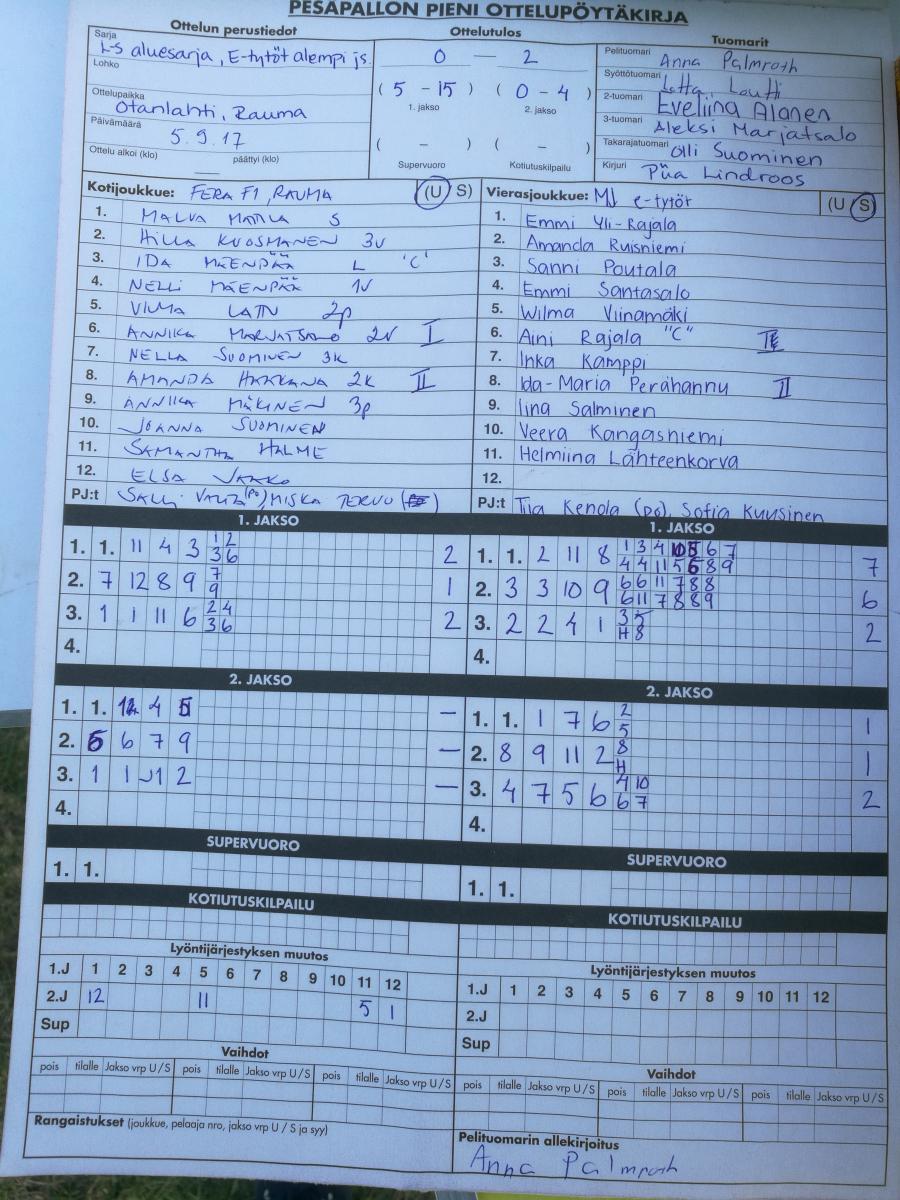 PESÄPALLON PIENI OTTELUPÖYTÄKIRJA
Ottelun perustiedot
Ottelutulos
Tuomarit
Sarja
L-S aluesarja, E-tytöt alempi js.
Lohko
Ottelupaikka
Otanlahti, Rauma
Päivämäärä
5.9.17
Ottelu alkoi (klo) päättyi (klo)
0 — 2
( 5 - 15 ) ( 0 - 4 )
1. jakso 2. jakso
( - ) ( - )
Supervuoro Kotiutuskilpailu
Pelituomari Anna Palmroth
Syöttötuomari Lotta Lautti
2-tuomari Eveliina Alanen
3-tuomari Aleksi Marjatsalo
Takarajatuomari Olli Suominen
Kirjuri Piia Lindroos
Kotijoukkue: FERA F1, RAUMA (U S)
1. MALVA MATTILA S
2. HILLA KUOSMANEN 3V
3. IDA MÄENPÄÄ L "C"
4. NELLI MÄENPÄÄ 1V
5. VILMA LATTU 2p
6. ANNIKA MARJATSALO 2V I
7. NELLA SUOMINEN 3K
8. AMANDA HAKKANA 2K II
9. ANNIIKA MÄKINEN 3p
10. JOANNA SUOMINEN
11. SAMANTHA HALME
12. ELSA
PJ:t SALLI (po), MISKA TERVO
Vierasjoukkue: MJ e-tytöt (U S)
1. Emmi Yli-Rajala
2. Amanda Ruisniemi
3. Sanni Poutala
4. Emmi Santasalo
5. Wilma Viinamäki
6. Aini Rajala "C"
7. Inka Kamppi
8. Ida-Maria Perähannu II
9. Iina Salminen
10. Veera Kangasniemi
11. Helmiina Lähteenkorva
12.
PJ:t Tiia Kenola (po), Sofia Kuusinen
1. JAKSO
1. 1. 11 4 3 1 2 2
3 6
2. 7 12 8 9 7 1
9
3. 1 1 11 6 2 4 2
3 6
4.
1. JAKSO
1. 1. 2 11 8 1 3 4 10 5 6 7 7
4 4 11 5 6 8 9
2. 3 3 10 9 6 6 11 7 8 8 6
6 11 7 8 8 9
3. 2 2 4 1 3 5 2
H 8
4.
2. JAKSO
1. 1. 12 4 5 —
2. 5 6 7 9 —
3. 1 1 12 —
4.
2. JAKSO
1. 1. 1 7 6 2 1
5
2. 8 9 11 2 8 1
H
3. 4 7 5 6 4 10 2
6 7
4.
SUPERVUORO
1. 1.
SUPERVUORO
1. 1.
KOTIUTUSKILPAILU
KOTIUTUSKILPAILU
Lyöntijärjestyksen muutos
1.J 1 2 3 4 5 6 7 8 9 10 11 12
2.J 12 11 5 1
Sup
Lyöntijärjestyksen muutos
1.J 1 2 3 4 5 6 7 8 9 10 11 12
2.J
Sup
Vaihdot
pois tilalle Jakso vrp U/S pois tilalle Jakso vrp U/S pois tilalle Jakso vrp U/S
Vaihdot
pois tilalle Jakso vrp U/S pois tilalle Jakso vrp U/S pois tilalle Jakso vrp U/S
Rangaistukset (joukkue, pelaaja nro, jakso vrp U / S ja syy)
Pelituomarin allekirjoitus
Anna Palmroth